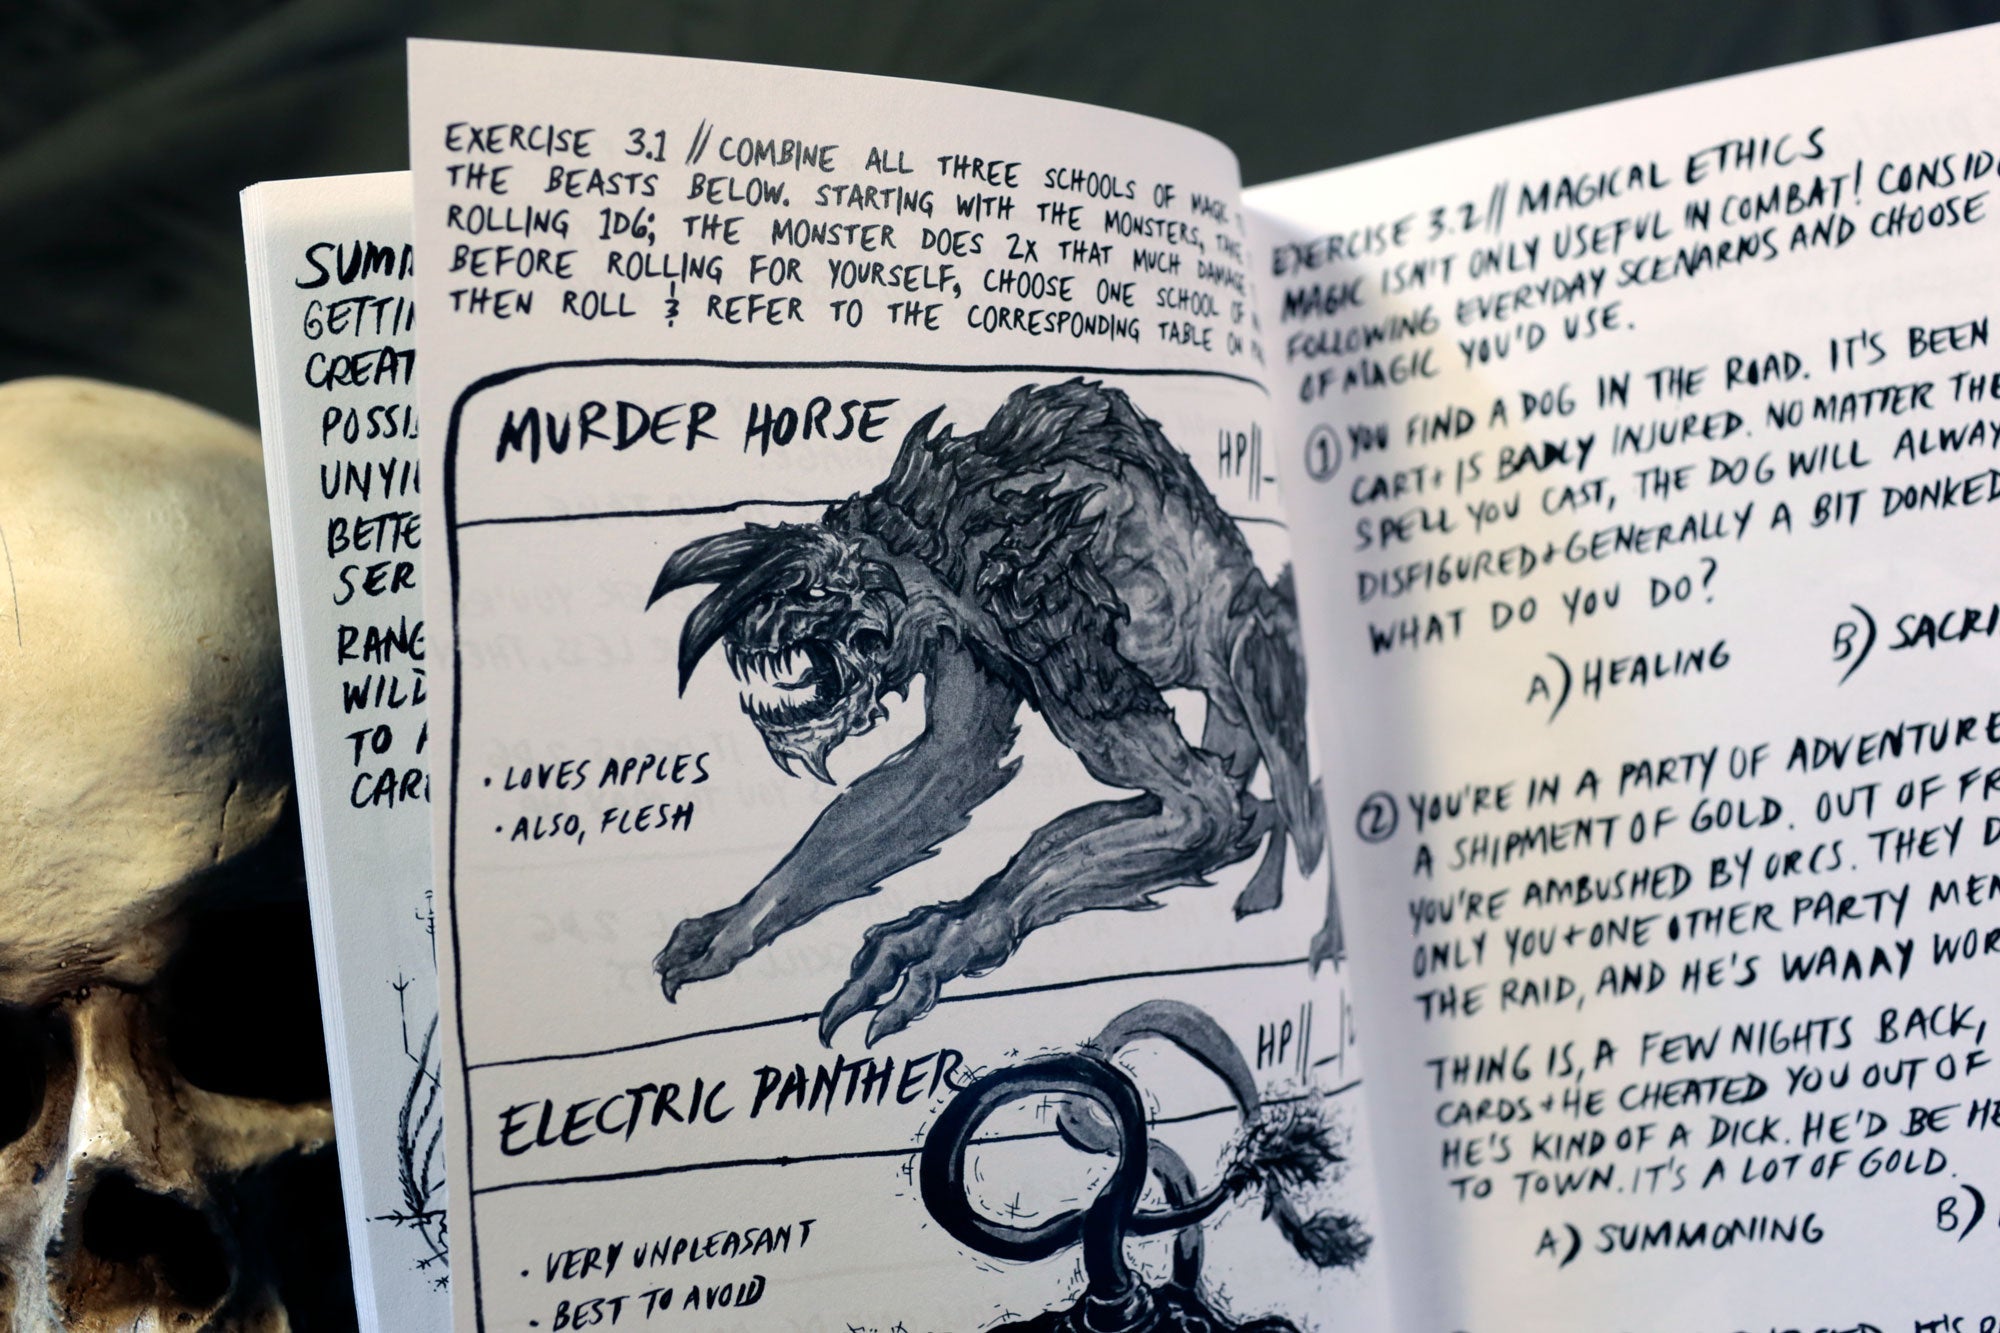 SUM
GETTI
CREAT
POSSI
UNYI
BETTE
SER
RANG
WILD
TO
CAR
EXERCISE 3.1 // COMBINE ALL THREE SCHOOLS OF MAGIC
THE BEASTS BELOW. STARTING WITH THE MONSTERS,
ROLLING 1D6; THE MONSTER DOES 2X THAT MUCH DAMAGE
BEFORE ROLLING FOR YOURSELF, CHOOSE ONE SCHOOL OF
THEN ROLL & REFER TO THE CORRESPONDING TABLE ON
MURDER HORSE HP||_
• LOVES APPLES
• ALSO, FLESH
ELECTRIC PANTHER HP||_|2
• VERY UNPLEASANT
• BEST TO AVOID
EXERCISE 3.2 // MAGICAL ETHICS
MAGIC ISN'T ONLY USEFUL IN COMBAT! CONSID
FOLLOWING EVERYDAY SCENARIOS AND CHOOSE
OF MAGIC YOU'D USE.
① YOU FIND A DOG IN THE ROAD. IT'S BEEN
CART + IS BADLY INJURED. NO MATTER THE
SPELL YOU CAST, THE DOG WILL ALWAY
DISFIGURED + GENERALLY A BIT DONKED
WHAT DO YOU DO?
A) HEALING B) SACRI
② YOU'RE IN A PARTY OF ADVENTURE
A SHIPMENT OF GOLD. OUT OF FR
YOU'RE AMBUSHED BY ORCS. THEY D
ONLY YOU + ONE OTHER PARTY MEM
THE RAID, AND HE'S WAAAY WOR
THING IS, A FEW NIGHTS BACK,
CARDS + HE CHEATED YOU OUT OF
HE'S KIND OF A DICK. HE'D BE HE
TO TOWN. IT'S A LOT OF GOLD.
A) SUMMONING B)